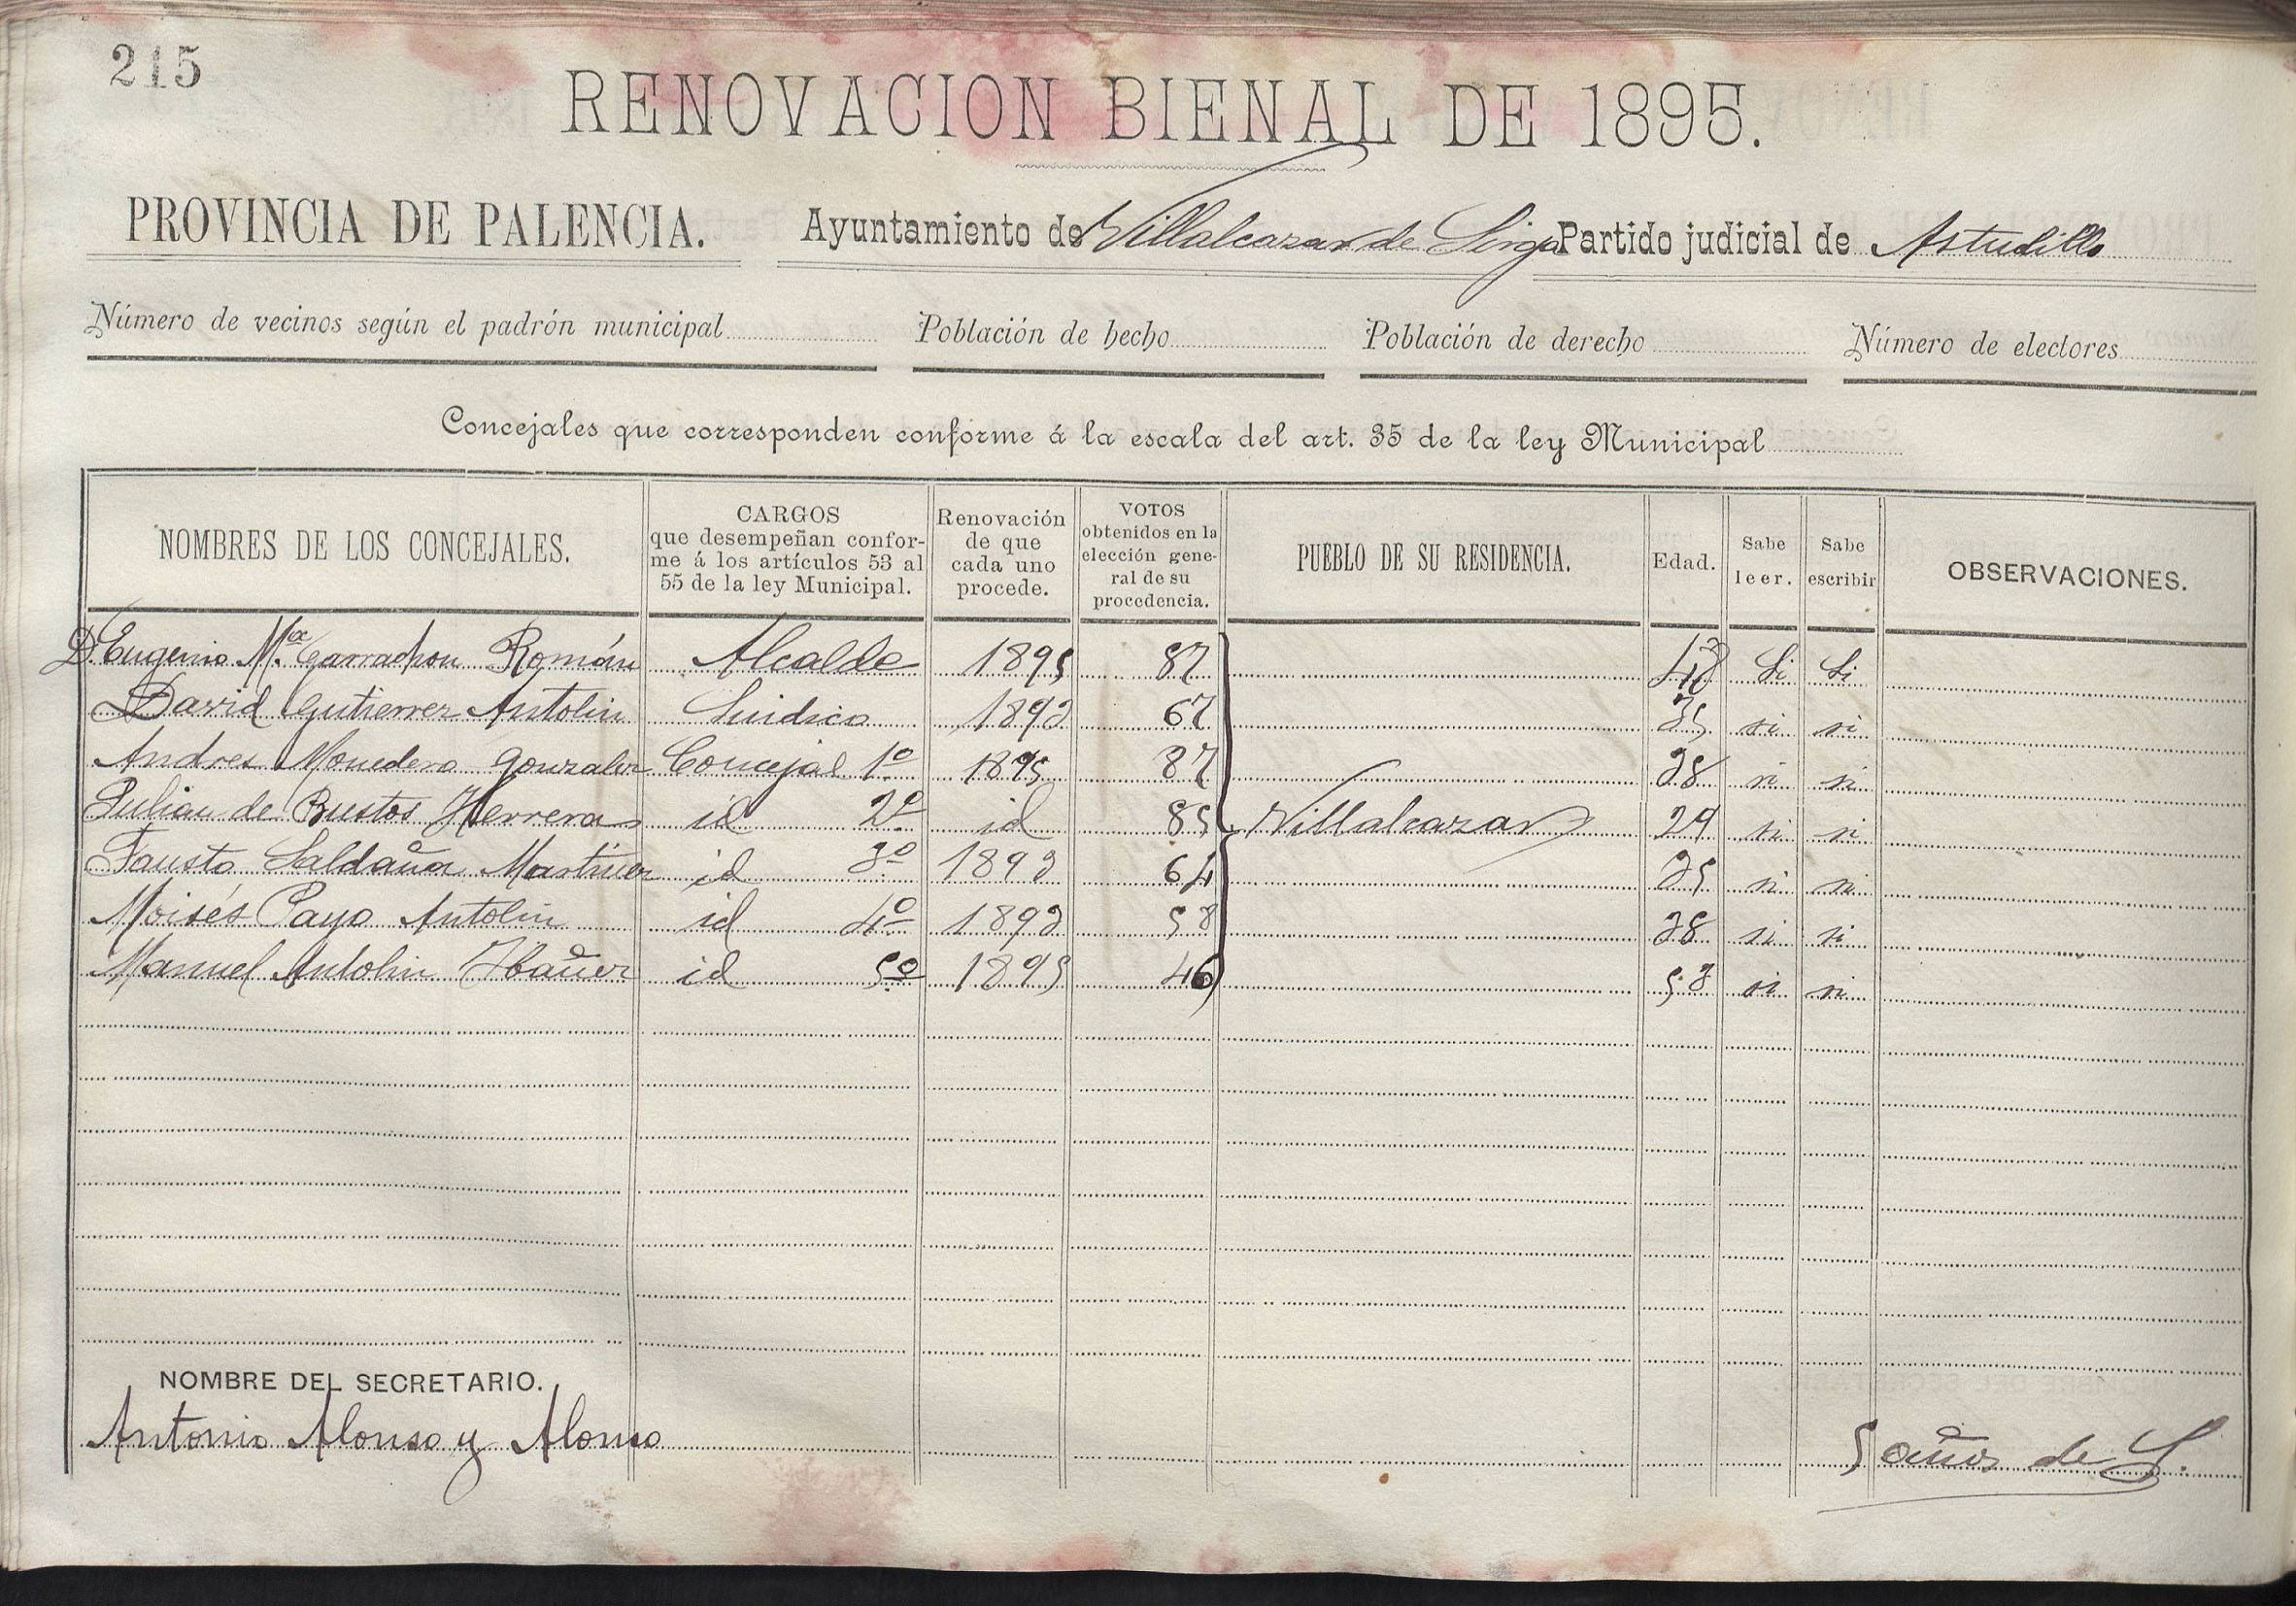 215
RENOVACION BIENAL DE 1895.
PROVINCIA DE PALENCIA. Ayuntamiento de Villalcazar de Sirga Partido judicial de Astudillo
Número de vecinos según el padrón municipal Población de hecho Población de derecho Número de electores
Concejales que corresponden conforme á la escala del art. 35 de la ley Municipal
NOMBRES DE LOS CONCEJALES.
CARGOS
que desempeñan confor-
me á los artículos 53 al
55 de la ley Municipal.
Renovación
de que
cada uno
procede.
VOTOS
obtenidos en la
elección gene-
ral de su
procedencia.
PUEBLO DE SU RESIDENCIA.
Edad.
Sabe
leer.
Sabe
escribir
OBSERVACIONES.
D. Eugenio M.ª Garrachon Román Alcalde 1895 87 Si Si
David Gutierrez Antolin Sindico 1893 67 35 si si
Andres Monedero Gonzalez Concejal 1º 1895 87 38 si si
Julian de Bustos Herrera id 2º id 85 Villalcazar 29 si si
Fausto Saldaña Martinez id 3º 1893 64 35 si si
Moisés Payo Antolin id 4º 1893 58 38 si si
Manuel Antolin Ibañez id 5º 1895 46 53 si si
NOMBRE DEL SECRETARIO.
Antonio Alonso y Alonso 5 años de S.